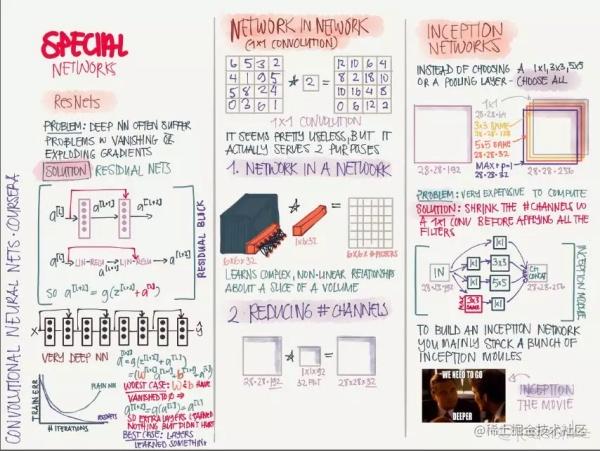 CONVOLUTIONAL NEURAL NETS · COURSERA
SPECIAL
NETWORKS
ResNets
PROBLEM: DEEP NN OFTEN SUFFER
PROBLEMS W VANISHING &
EXPLODING GRADIENTS
SOLUTION RESIDUAL NETS
a[l] a[l+2]
RESIDUAL BLOCK
a[l] LIN-RELU LIN-RELU a[l+2]
a[l+1]
SO a[l+2] = g(z[l+2] + a[l])
X ŷ
VERY DEEP NN
TRAIN ERR
PLAIN NN
RESNETS
# ITERATIONS
WORST CASE: W & b HAVE
VANISHED TO 0 ⇒
SO EXTRA LAYERS LEARNED
NOTHING BUT DIDN'T HURT
BEST CASE: LAYERS
LEARNED SOMETHING
NETWORK IN NETWORK
(1×1 CONVOLUTION)
6 5 3 2
4 1 9 5
5 8 2 4
0 3 6 1
* 2 =
12 10 6 4
8 2 18 10
10 16 4 8
0 6 12 2
1×1 CONVOLUTION
IT SEEMS PRETTY USELESS, BUT IT
ACTUALLY SERVES 2 PURPOSES
1. NETWORK IN A NETWORK
6×6×32
1×1×32
6×6×# FILTERS
LEARNS COMPLEX, NON-LINEAR RELATIONSHIPS
ABOUT A SLICE OF A VOLUME
2 REDUCING # CHANNELS
28·28·192
1×1×192
32 FILT
28×28×32
INCEPTION
NETWORKS
INSTEAD OF CHOOSING A 1×1, 3×3, 5×5
OR A POOLING LAYER - CHOOSE ALL
1×1
28·28·64
3×3 SAME
28·28·128
5×5 SAME
28·28·32
MAX POOL
28·28·32
28·28·192
28·28·256
PROBLEM: VERY EXPENSIVE TO COMPUTE
SOLUTION: SHRINK THE # CHANNELS W
A 1×1 CONV BEFORE APPLYING ALL THE
FILTERS
IN
28·28·192
1×1
1×1 3×3
1×1 5×5
3×3 SAME 1×1
CH CONCAT
28·28·256
INCEPTION MODULE
TO BUILD AN INCEPTION NETWORK
YOU MAINLY STACK A BUNCH OF
INCEPTION MOULES
WE NEED TO GO
DEEPER
INCEPTION
THE MOVIE
@稀土掘金技术社区